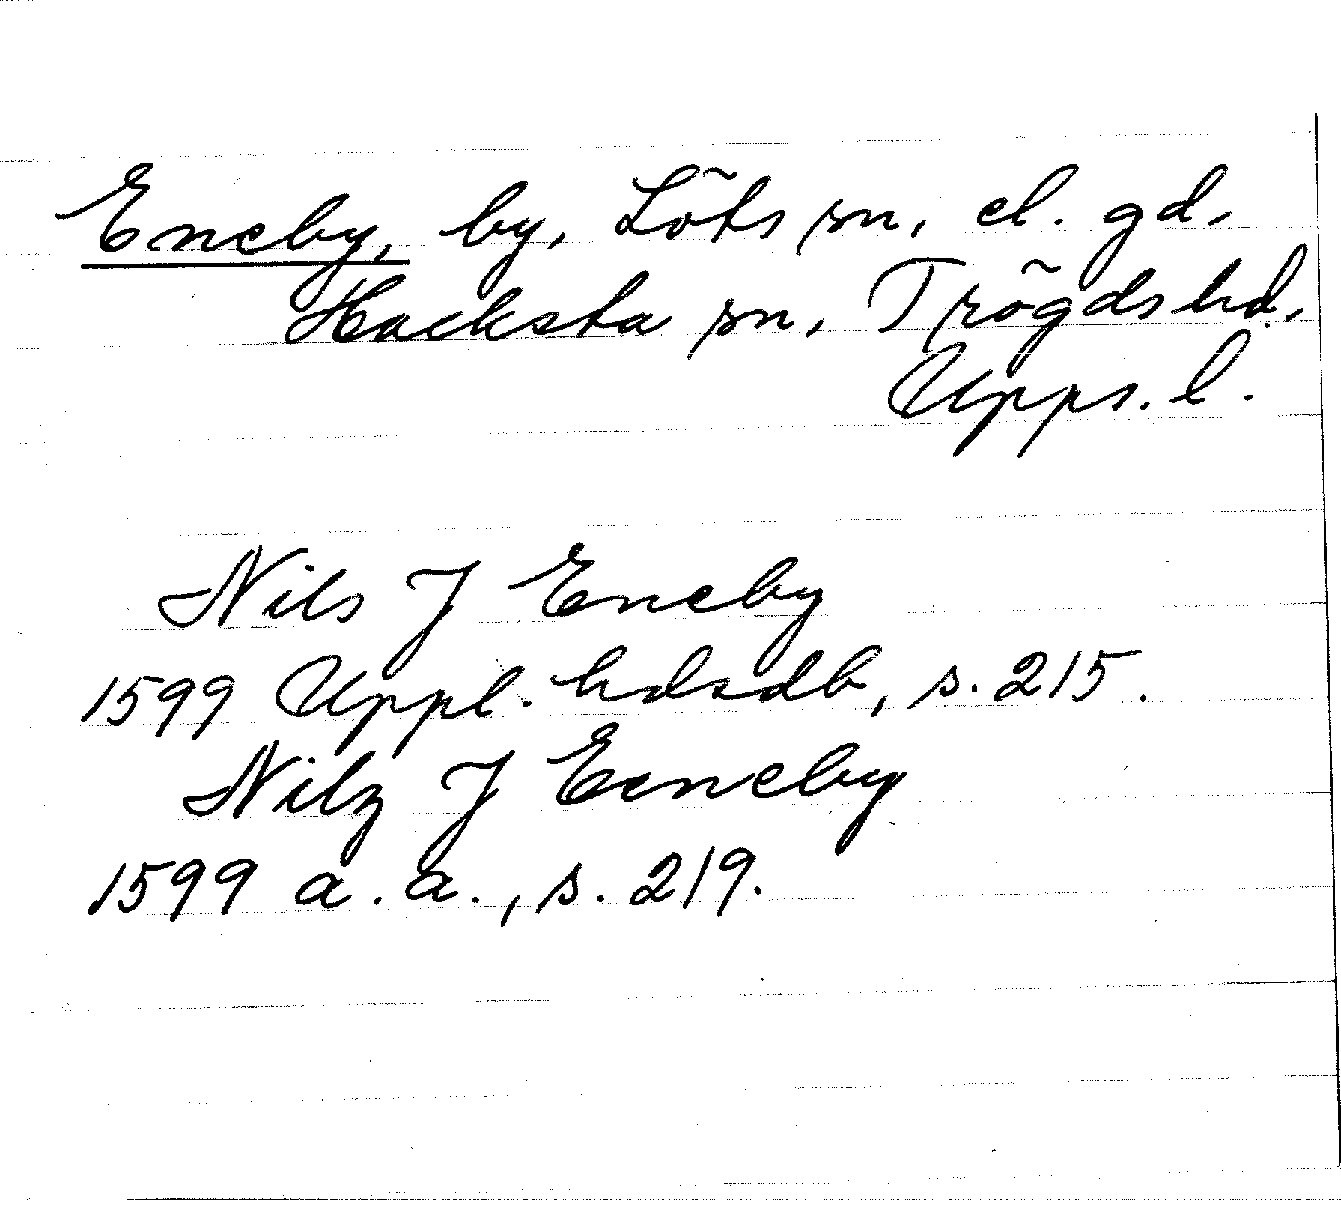 Eneby, by, Löts sn, el. gd,
Hacksta sn, Trögds hd,
Upps. l.
Nils J Eneby
1599 Uppl. hdsdb, s. 215.
Nilz J Eeneby
1599 a. a., s. 219.